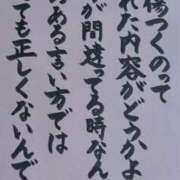 傷つくのって
れた内容がどかよ
が間違ってる時なん
のある言い方では
ても正しくないんで